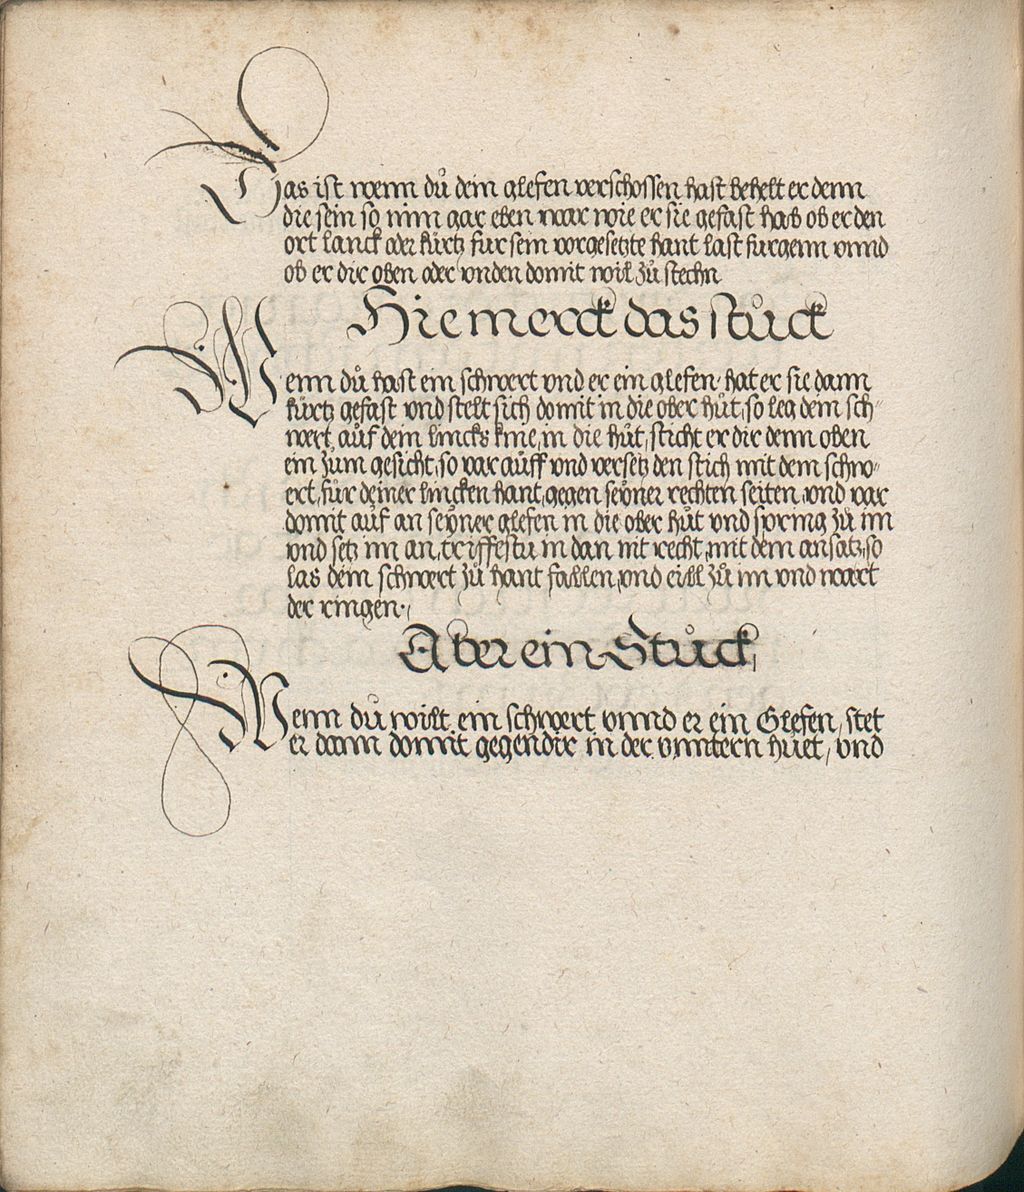 Das ist wenn dů dein glefen verschossen hast behelt er denn
die sein so nim gar eben war wie er sie gefast hab ob er den
ort lanck oder kůrtz fur sein vorgesetzte hant last furgenn vnnd
ob er dir oben oder vnden domit wil zů stechn
Hie merck das stůck
Wenn dů hast ein schwert vnd er ein glefen· hat er sie dann
kůrtz gefast vnd stelt sich domit in die ober hůt, so leg dein sch⸗
wert, auf dein lincks knie, in die hůt, sticht er dir denn oben
ein zům gesicht, so var aůff vnd versetz den stich mit dem schw⸗
ert, fůr deiner lincken hant, gegen seÿner rechten seiten, vnd var
domit aůf an seÿner glefen in die ober hůt vnd spring zů im
vnd setz im an, triffestu in dan nit recht, mit dem ansatz, so
las dein schwert zů hant fallen, vnd eill zů im vnd wart
der ringen·,
Aber ein Stůck,
Wenn dů wilt ein schwert vnnd er ein Glefen, stet
er dann domit gegen dir in der vnntern huet, vnd